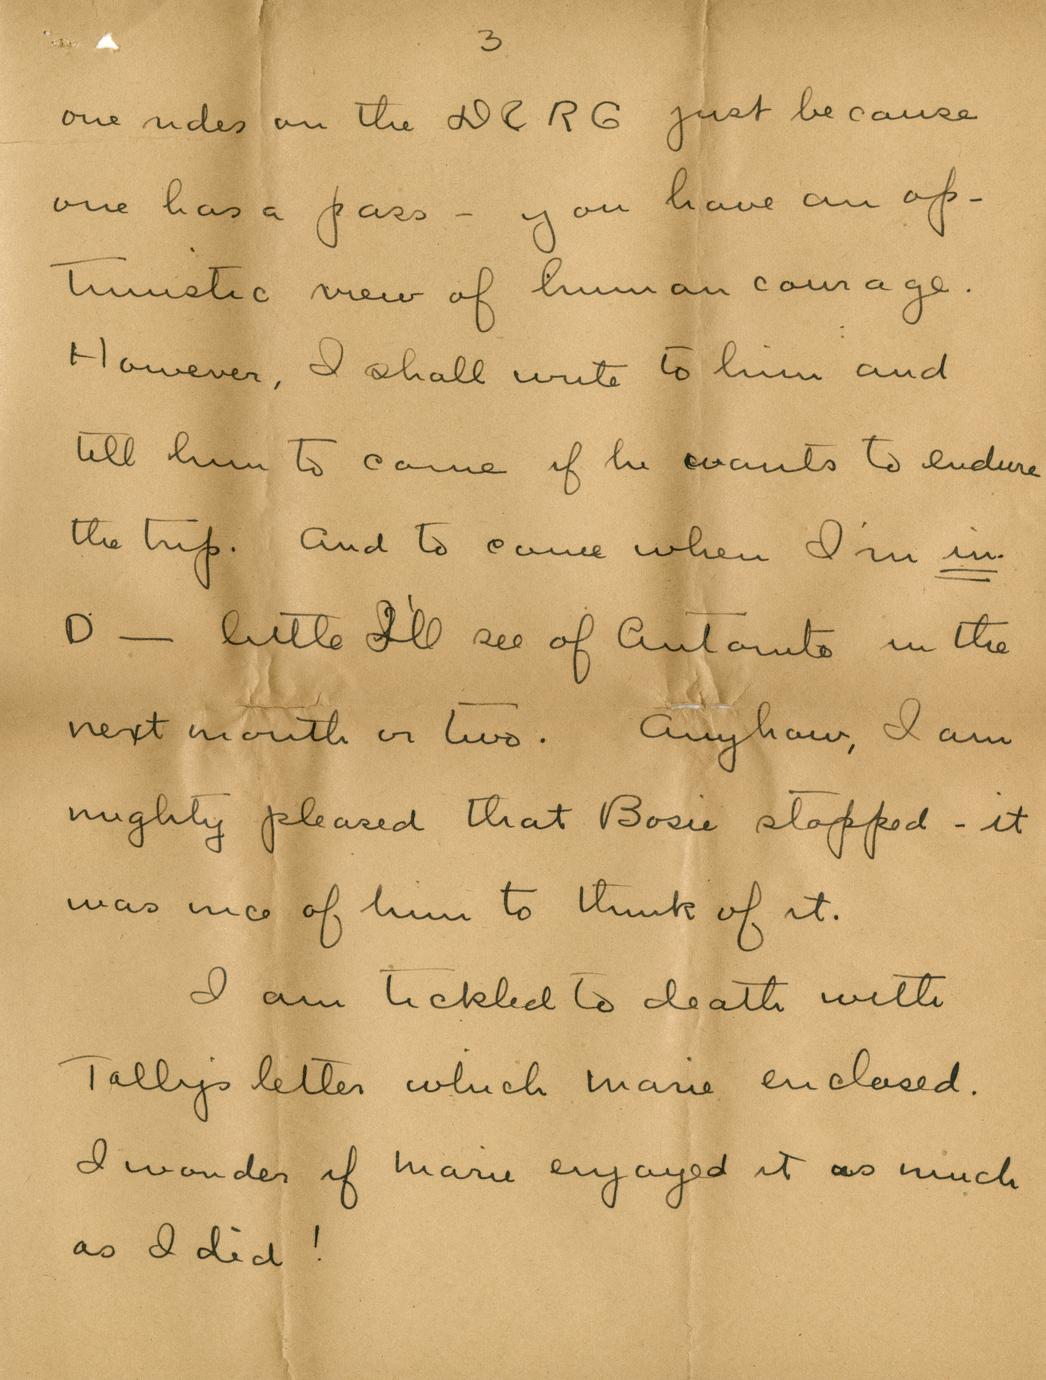 3
one rides on the D & R G just because
one has a pass - you have an op-
timistic view of human courage.
However, I shall write to him and
tell him to come if he wants to endure
the trip. And to come when I'm in
D — little I'll see of Antonito in the
next month or two. Anyhow, I am
mighty pleased that Bosie stopped - it
was nice of him to think of it.
I am tickled to death with
Tally's letter which Marie enclosed.
I wonder if Marie enjoyed it as much
as I did!